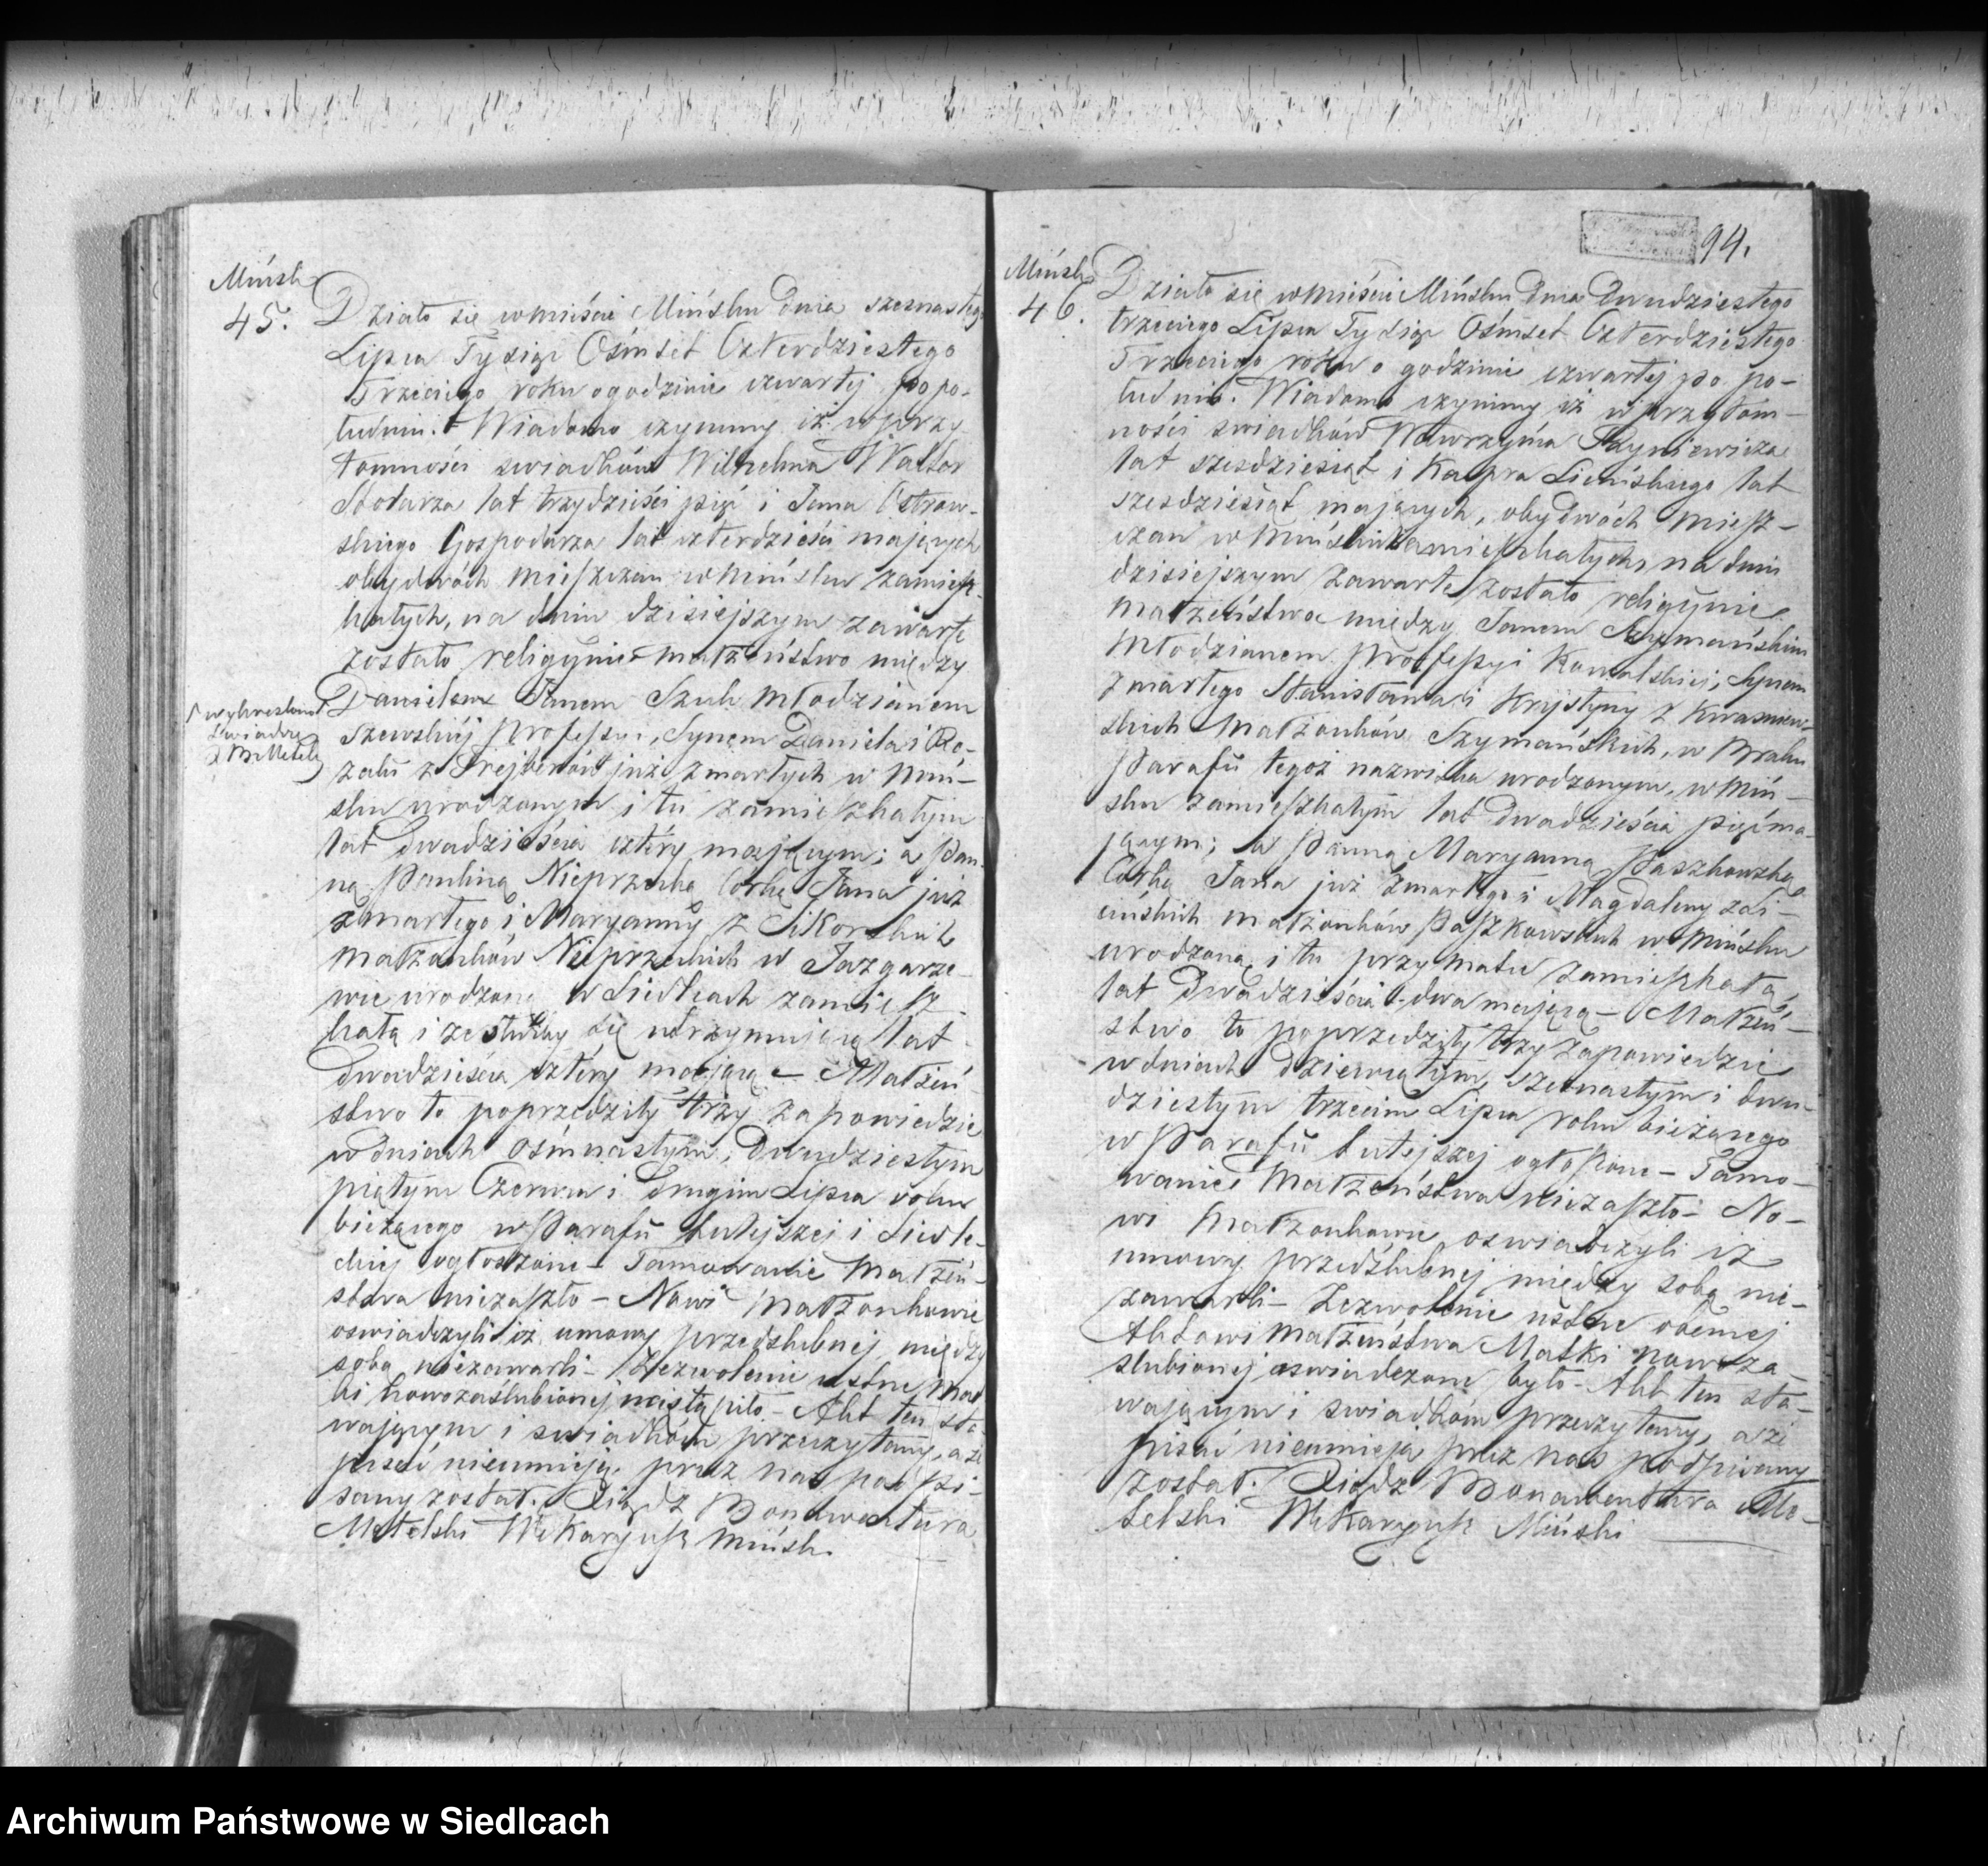 Mińsk
45.
Działo się w mieście Mińsku dnia szesnastego
Lipca Tysiąc Ośmset Czterdziestego
Trzeciego roku o godzinie czwartej po po-
łudniu. Wiadomo czynimy iż w przy-
tomności świadków Wilhelma Walter
Stolarza lat trzydzieści pięć i Jana Ostrow-
skiego Gospodarza lat czterdzieści mających
obydwóch mieszczan w Mińsku zamiesz-
kałych, na dniu dzisiejszym zawarte
zostało religijnie małżeństwo między
Danielem Janem Szuh Młodzianem
wykreślono
świadczę
X B Metels
szewskiej Professyi, Synem Daniela i Ro-
zalii z już zmarłych w Miń-
sku urodzonym i tu zamieszkałym
lat dwadzieścia cztery mającym; a Pan-
ną Pauliną Nieprzecką Córką Jana już
zmarłego i Maryanny z Sikorskich
małżonków Nieprzeckich w Jazgarze-
wie urodzoną w Siedlcach zamiesz-
kałą i ze służby się utrzymującą lat
dwadzieścia cztery mającą – Małżeń-
stwo to poprzedziły trzy zapowiedzie
w dniach ośmnastym, Dwudziestym
piątym Czerwca i drugim Lipca roku
bieżącego w Parafii tutejszej i Siedle-
ckiej ogłoszone – Tamowanie Małżeń-
stwa niezaszło – Nowi małżonkowie
oswiadczyli iż umowy przedślubnej między
sobą niezawarli – Zezwolenie ustne Mat
ki nowozaślubionej nastąpiło – Akt ten sta-
wającym i świadkom przeczytany, a że
pisać nieumieją, przez nas podpi-
sany został. Xiądz Bonawentura
Metelski Wikaryusz Mińsk.
94.
Mińsk
46.
Działo się w mieście Mińsku dnia dwudziestego
trzeciego Lipca Tysiąc Ośmset Czterdziestego
Trzeciego roku o godzinie czwartej po po-
łudniu. Wiadomo czynimy iż w przytom-
ności świadków Wawrzyńca
lat sześdziesiąt i Kacpra Licińskiego lat
sześdziesiąt mających, obydwóch miesz-
czan w Mińsku zamieszkałych, na dniu
dzisiejszym zawarte zostało religijnie
małżeństwo między Janem Szymańskim
Młodzianem Professyi Kowalskiej, Synem
zmarłego Stanisława i Krystyny z Kwasniew-
skich Małżonków Szymańskich, w
Parafii tegoż nazwiska urodzonym, w Miń-
sku zamieszkałym lat dwadzieścia pięć ma-
jącym; a Panną Maryanną Paszkowską
Córką Jana już zmarłego i Magdaleny
małżonków Paszkowskich w Mińsku
urodzoną i tu przy matce zamieszkałą,
lat dwadzieścia dwa mającą – Małżeń-
stwo to poprzedziły trzy zapowiedzie
w dniach dziewiątym, szesnastym i dwu-
dziestym trzecim Lipca roku bieżącego
w Parafii tutejszej ogłoszone – Tamo-
wanie Małżeństwa niezaszło – No-
wi Małżonkowie oswiadczyli iż
umowy przedślubnej między sobą nie-
zawarli – Zezwolenie ustne obecnej
Aktowi małżeństwa Matki nowoza-
ślubionej oświadczone było – Akt ten sta-
wającym i świadkom przeczytany, a że
pisać nieumieją przez nas podpisany
został. Xiądz Bonawentura Me-
telski Wikaryusz Miński
Archiwum Państwowe w Siedlcach